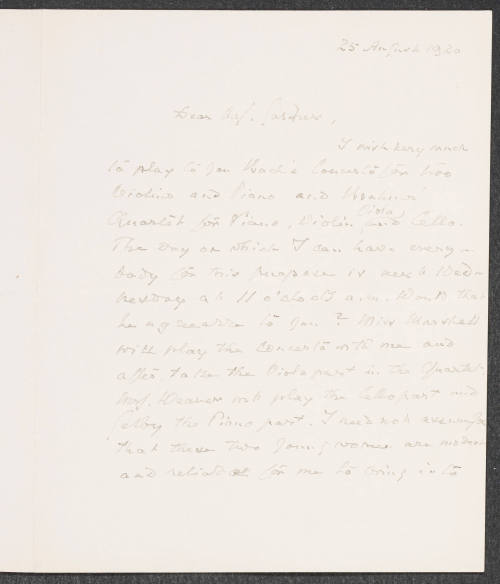 25 August 1920
Dear Mrs. Gardner,
I wish very much
to play to you Bach's Concerto for two
Violins and Piano and Brahms'
Quartet for Piano, Violin, Viola and Cello.
The day on which I can have every-
body for this purpose is next Wed-
nesday at 11 o'clock a.m. Would that
be agreeable to you? Miss Marshall
will play the Concerto with me and
also take the Viola part in the Quartet.
Mrs. Weaver will play the Cello part and
the Piano part. I need not
that these two young women are modest
and reliable for me to bring into